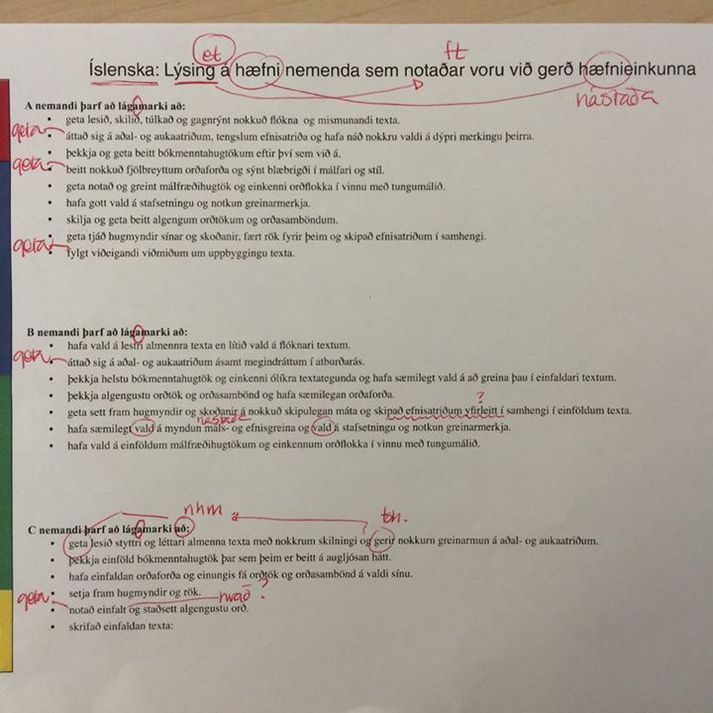 et ft
Íslenska: Lýsing á hæfni nemenda sem notaðar voru við gerð hæfnieinkunna
nástaða
A nemandi þarf að lágamarki að:
• geta lesið, skilið, túlkað og gagnrýnt nokkuð flókna og mismunandi texta.
geta • áttað sig á aðal- og aukaatriðum, tengslum efnisatriða og hafa náð nokkru valdi á dýpri merkingu þeirra.
• þekkja og geta beitt bókmenntahugtökum eftir því sem við á.
geta • beitt nokkuð fjölbreyttum orðaforða og sýnt blæbrigði í málfari og stíl.
• geta notað og greint málfræðihugtök og einkenni orðflokka í vinnu með tungumálið.
• hafa gott vald á stafsetningu og notkun greinarmerkja.
• skilja og geta beitt algengum orðtökum og orðasamböndum.
• geta tjáð hugmyndir sínar og skoðanir, fært rök fyrir þeim og skipað efnisatriðum í samhengi.
geta • fylgt viðeigandi viðmiðum um uppbyggingu texta.
B nemandi þarf að lágamarki að:
• hafa vald á lestri almennra texta en lítið vald á flóknari textum.
geta • áttað sig á aðal- og aukaatriðum ásamt megindráttum í atburðarás.
• þekkja helstu bókmenntahugtök og einkenni ólíkra textategunda og hafa sæmilegt vald á að greina þau í einfaldari textum.
• þekkja algengustu orðtök og orðasambönd og hafa sæmilegan orðaforða.
?
• geta sett fram hugmyndir og skoðanir á nokkuð skipulegan máta og skipað efnisatriðum yfirleitt í samhengi í einföldum texta.
nástaða
• hafa sæmilegt vald á myndun máls- og efnisgreina og vald á stafsetningu og notkun greinarmerkja.
• hafa vald á einföldum málfræðihugtökum og einkennum orðflokka í vinnu með tungumálið.
nhm
C nemandi þarf að lágamarki að:
• geta lesið styttri og léttari almenna texta með nokkrum skilningi og gerir nokkurn greinarmun á aðal- og aukaatriðum.
• þekkja einföld bókmenntahugtök þar sem þeim er beitt á augljósan hátt.
• hafa einfaldan orðaforða og einungis fá orðtök og orðasambönd á valdi sínu.
• setja fram hugmyndir og rök. hvað?
geta • notað einfalt og staðsett algengustu orð.
• skrifað einfaldan texta: